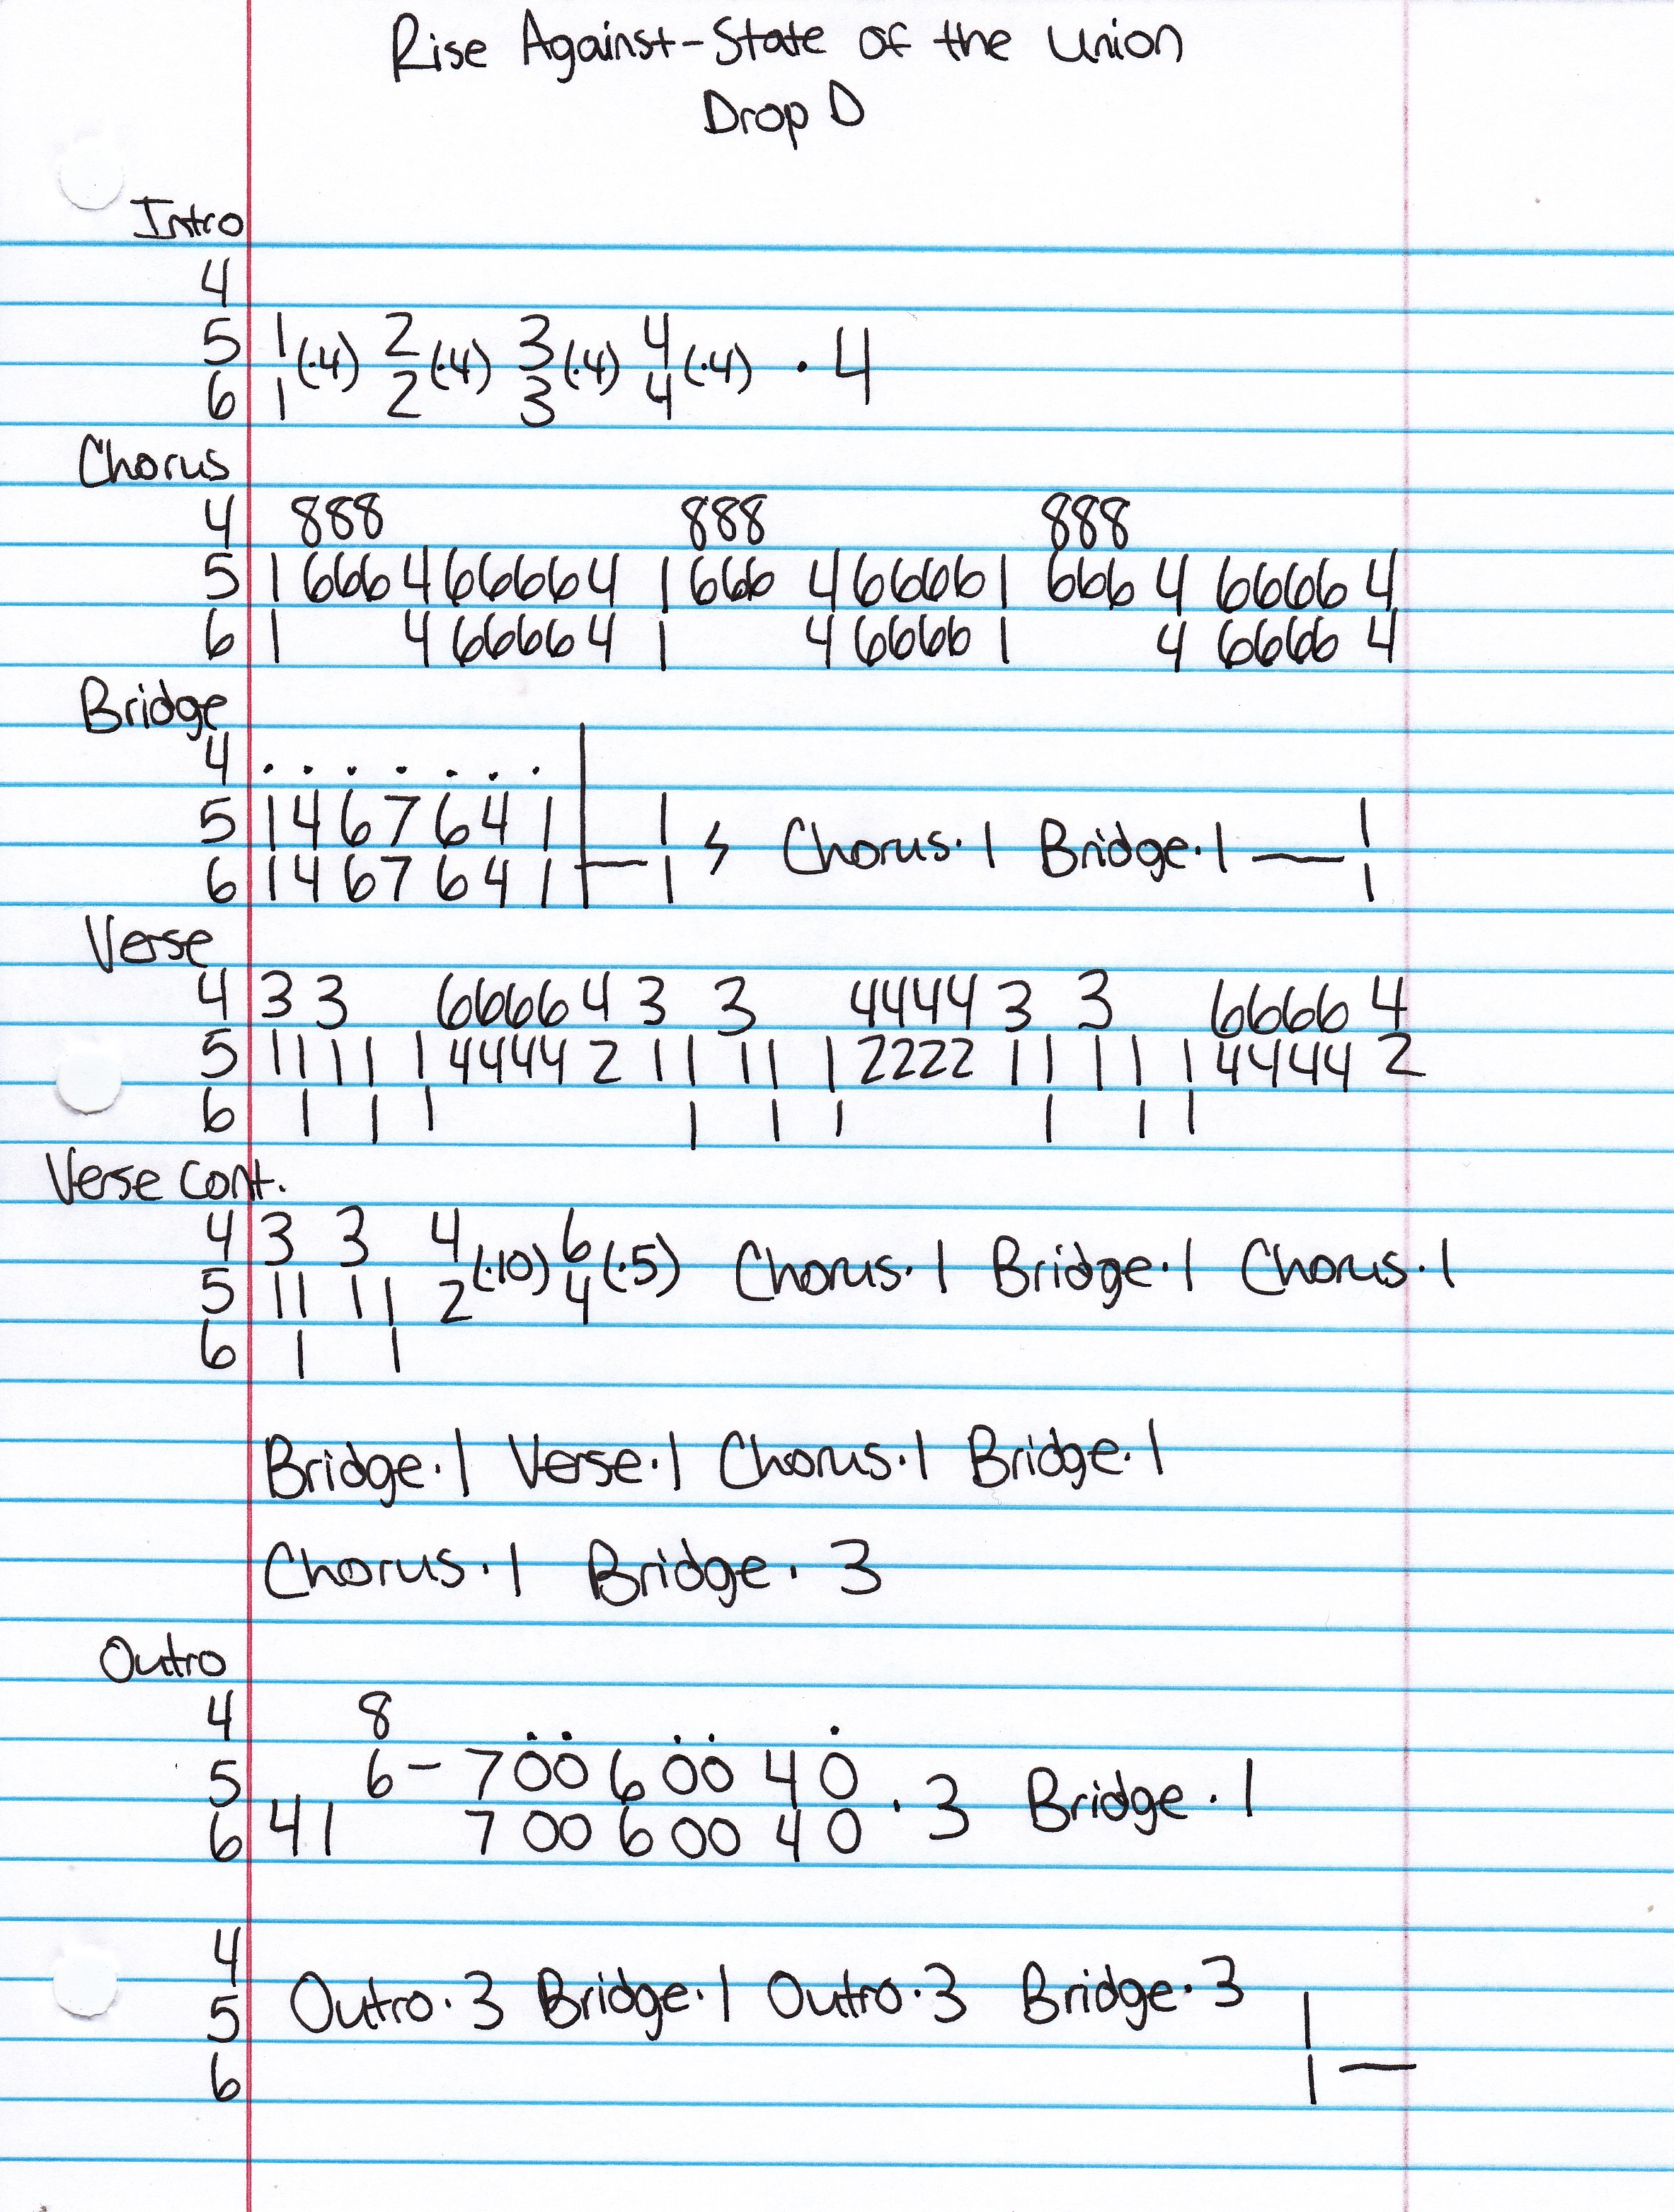 Rise Against-State of the Union
Drop D
Intro
4
5 1 2 3 4
(·4) (·4) (·4) (·4) · 4
6 1 2 3 4
Chorus
4 888 888 888
5 1 666 4 66666 4 1 666 4 6666 1 666 4 6666 4
6 1 4 6666 4 1 4 6666 1 4 6666 4
Bridge
4 . . . . . . .
5 1 4 6 7 6 4 1 | 1
— ϟ Chorus·1 Bridge·1 — 1
6 1 4 6 7 6 4 1 | 1 1
Verse
4 3 3 6666 4 3 3 4444 3 3 6666 4
5 11 11 1 4444 2 11 11 1 2222 11 11 1 4444 2
6 1 1 1 1 1 1 1 1 1
Verse cont.
4 3 3 4 6
(·10) (·5) Chorus·1 Bridge·1 Chorus·1
5 11 11 2 4
6 1 1
Bridge·1 Verse·1 Chorus·1 Bridge·1
Chorus·1 Bridge·3
Outro
4 8 . . . . .
5 6 - 7 00 6 00 4 0
· 3 Bridge·1
6 41 7 00 6 00 4 0
4
Outro·3 Bridge·1 Outro·3 Bridge·3
5 1
6 1 —